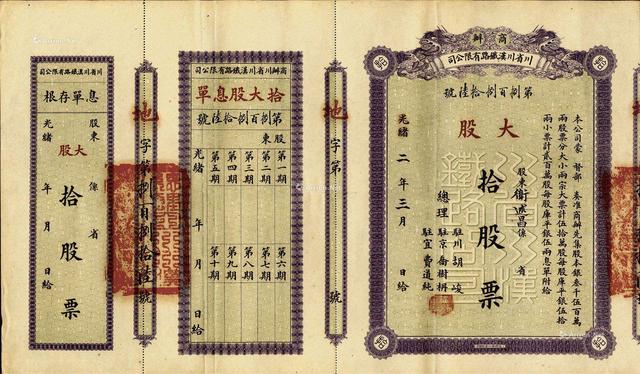 商辦
川省川漢鐵路有限公司
第捌百捌拾陸號
大股
本公司蒙 督部 奏准商辦先集股本銀叁千伍百萬
兩股票分大小兩宗大票計伍拾萬股每股庫平銀伍拾
兩小票計貳百萬股每股庫平銀伍兩息單附給
股東 係 省
拾股票
總理
駐川 胡峻
駐京 喬樹枏
駐宜 費道純
光緒 二年三月 日給
地字第 號
商辦川省川漢鐵路有限公司
拾大股息單
第捌百捌拾陸號
股東
第一期 第六期
第二期 第七期
第三期 第八期
第四期 第九期
第五期 第十期
光緒 年 月 日給
地字第捌百捌拾陸號
川省川漢鐵路有限公司
息單存根
股東 係 省
大股拾股票
光緒 年 月 日給